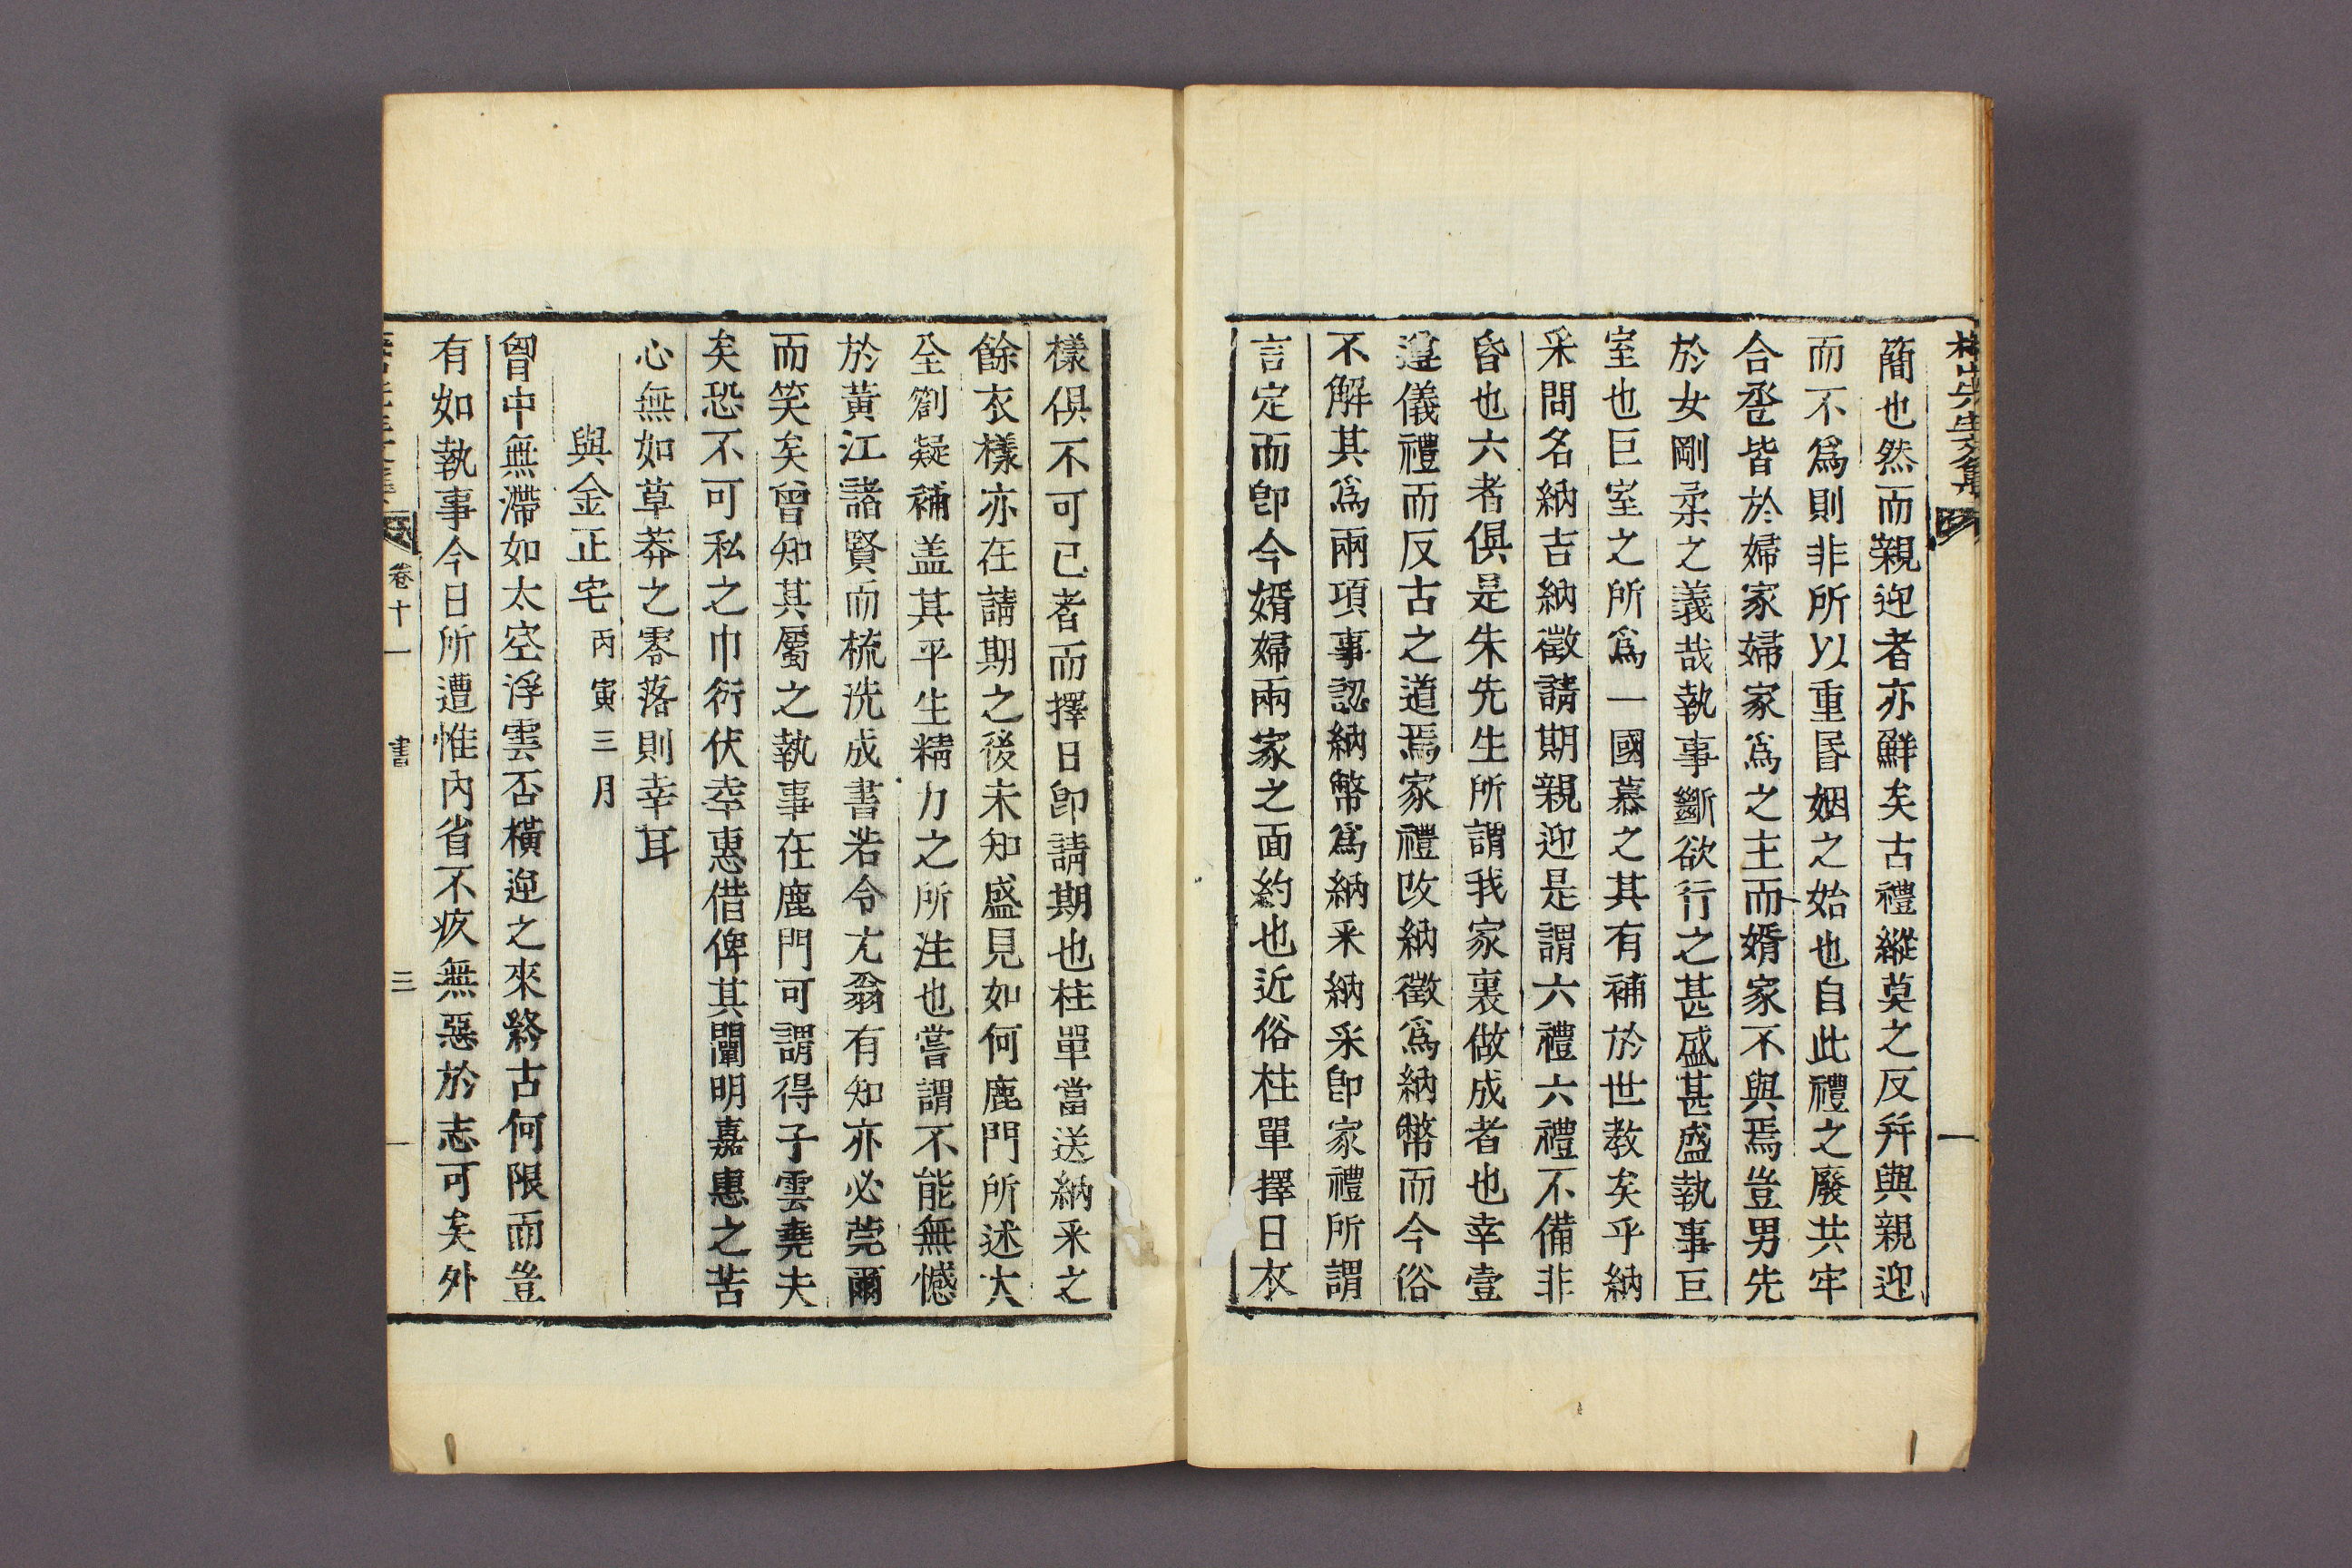 梅山先生文集
簡也然而親迎者亦鮮矣古禮縱莫之反幷與親迎
而不爲則非所以重昬姻之始也自此禮之廢共牢
合巹皆於婦家婦家爲之主而婿家不與焉豈男先
於女剛柔之義哉執事斷欲行之甚盛甚盛執事巨
室也巨室之所爲一國慕之其有補於世敎矣乎納
采問名納吉納徵請期親迎是謂六禮六禮不備非
昏也六者俱是朱先生所謂我家裏做成者也幸壹
遵儀禮而反古之道焉家禮改納徵爲納幣而今俗
不解其爲兩項事認納幣爲納采納采卽家禮所謂
言定而卽今婿婦兩家之面約也近俗柱單擇日衣
樣俱不可已者而擇日卽請期也柱單當送納采之
餘衣樣亦在請期之後未知盛見如何鹿門所述大
全箚疑補盖其平生精力之所注也嘗謂不能無憾
於黃江諸賢而梳洗成書若令尤翁有知亦必莞爾
而笑矣曾知其屬之執事在鹿門可謂得子雲堯夫
矣恐不可私之巾衍伏幸惠借俾其闡明嘉惠之苦
心無如草莽之零落則幸耳
與金正宅丙寅三月
胷中無滯如太空浮雲否橫逆之來終古何限而豈
有如執事今日所遭惟內省不疚無惡於志可矣外
卷十一 書 三